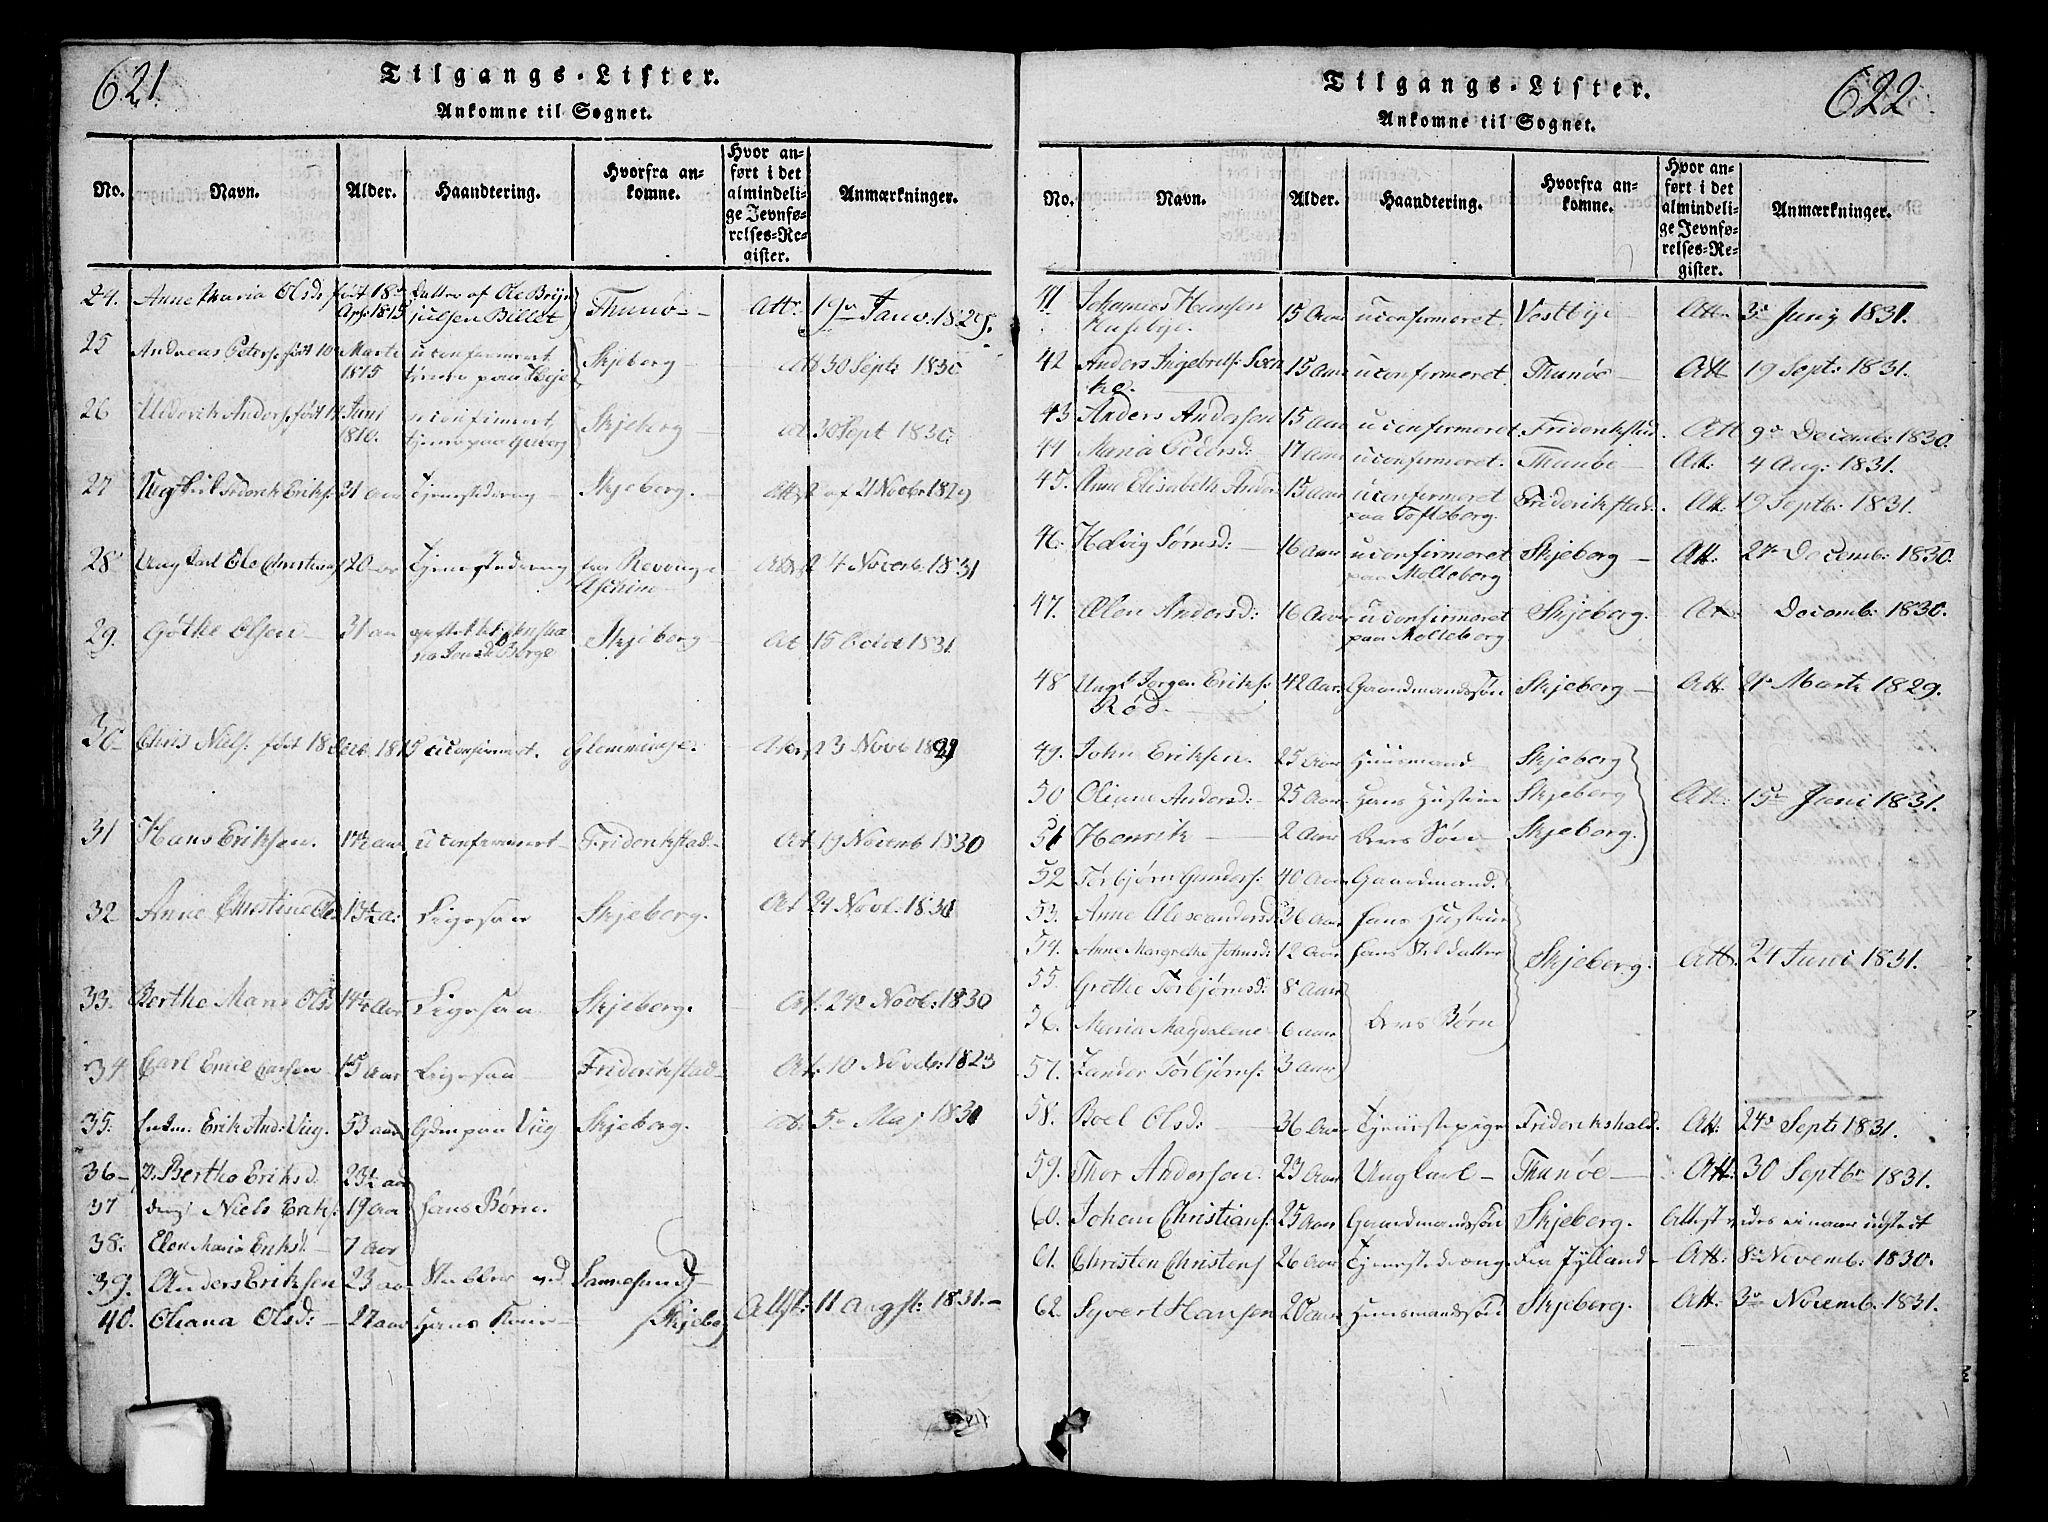 621
Tilgangs-Lister.
Ankomne til Sognet.
No. Navn. Alder. Haandtering. Hvorfra ankomne. Hvor anført i det almindelige Jevnførelses-Register. Anmærkninger.
24. Anne Maria Olsd født 18de Apr: 1815 Datter af Ole Brynjulsen Billet Thunøe Att. 19de Janv. 1829.
25 Andreas Peters: født 10 Marts 1815 uconfirmert, tjener paa Skjeberg Att 30 Septr 1830
26 Anders: født 14 Juni 1810. uconfirmert, tjener paa Skjeberg at 30 Sept 1830.
27 Ungkarl Frederik Eriks: 31 aar Tjenestedreng Skjeberg. Attest af 21 Novbr 1829
28 Ungkarl Ole Christians 20 aar Tjenestedreng fra Revoug Aschim Attest 4 Novemb. 1831
29. Göthe Olsen 31 aar gift Borge Skjeberg At 15 1831
30 Chris Niels: født 18 Decb. 1815 uconfirmert. Glemminge. Attest 3 Novb
31 Hans Eriksen. 17½ aar uconfirmert Friderikstad At. 19 Novemb 1830
32 Anne Christine Ols 13½ a: Ligesaa Skjeberg. At 24 Novb. 1830
33. Berthe Mari Olsd 14½ Aar Ligesaa Skjeberg. At. 24de Novb: 1830
34 Carl Emil 15 Aar Ligesaa Friderikstad At. 10 Novbr. 1823
35. Erik And: Viig. 53 aar Gdm paa Viig Skjeberg. At. 5te Maj 1831
36 P. Berthe Eriksd. 23½ aar
37 dreng Niels Eriks: 19 aar hans Børn.
38. Elen Maria Eriksd. 7 aar
39. Anders Eriksen 23 aar ved Sannesund
40. Oliana Olsd: 27 aar Hans Kone Skjeberg Attst: 11 Augst: 1831.
622
Tilgangs-Lister.
Ankomne til Sognet.
No. Navn. Alder. Haandtering. Hvorfra ankomne. Hvor anført i det almindelige Jevnførelses-Register. Anmærkninger.
41. Johannes Hansen Huseby. 15 Aar uconfirmeret. Vestbye Att 3de Junj 1831.
42 Anders Ingebrets: 15 Aar uconfirmeret. Thunøe Att 19 Septr: 1831.
43 Anders Andersen 15 Aar uconfirmeret Friderikstad. Att 9de Decemb: 1830.
44 Maria Pedersd: 17 Aar uconfirmeret. Thunøe Att: 4 Aug: 1831.
45. Anne Elisabeth Anders 15 Aar uconfirmeret paa Tofteberg. Friderikstad. Att: 19 Septbr: 1831.
46. Hedvig Sørnsd: 16 Aar uconfirmeret paa Molteberg Skjeberg Att: 27de Decemb: 1830.
47. Ælen Andersd: 16 Aar uconfirmeret paa Molteberg Skjeberg. At: Decemb: 1830.
48 Ungk Jørgen Eriks: Röd. 42 Aar. Gaardmandssön Skjeberg Att. 21de Marts 1829.
49. John Eriksen. 25 Aar Huusmand Skjeberg
50 Oliane Andersd: 25 Aar. Hans Hustru Skjeberg Att: 15de Juni 1831.
51 Henrik 2 Aar Deres Sön Skjeberg.
52 Torbjörn Gunders: 40 Aar Gaardmand.
53. Anne Alexandersd: 36 Aar hans Hustrue
54. Anne Margrethe Johnsd: 12 Aar hans Steddatter Skjeberg. Att. 24 Juni 1831.
55. Grethe Torbjörnsd: 8 Aar
56. Maria Magdalene 6 aar Deres Børn
57. Zander Torbjörns: 3 aar
58. Boel Olsd: 36 Aar Tjenistepige Friderikshald. Att: 24de Septr 1831.
59. Thor Andersen. 23 Aar Ungkarl Thunøe Att. 30 Septbr 1831.
60. Johan Christians: 25 Aar Gaardmandssön Skjeberg. Attest vides ei naar udstedt
61. Christen Christens 26 Aar Tjenestedreng Fra Jylland Att: 8de Novemb: 1830.
62. Syvert Hansen 20 Aar Huusmandssön Skjeberg. Att: 3de Novemb. 1831.